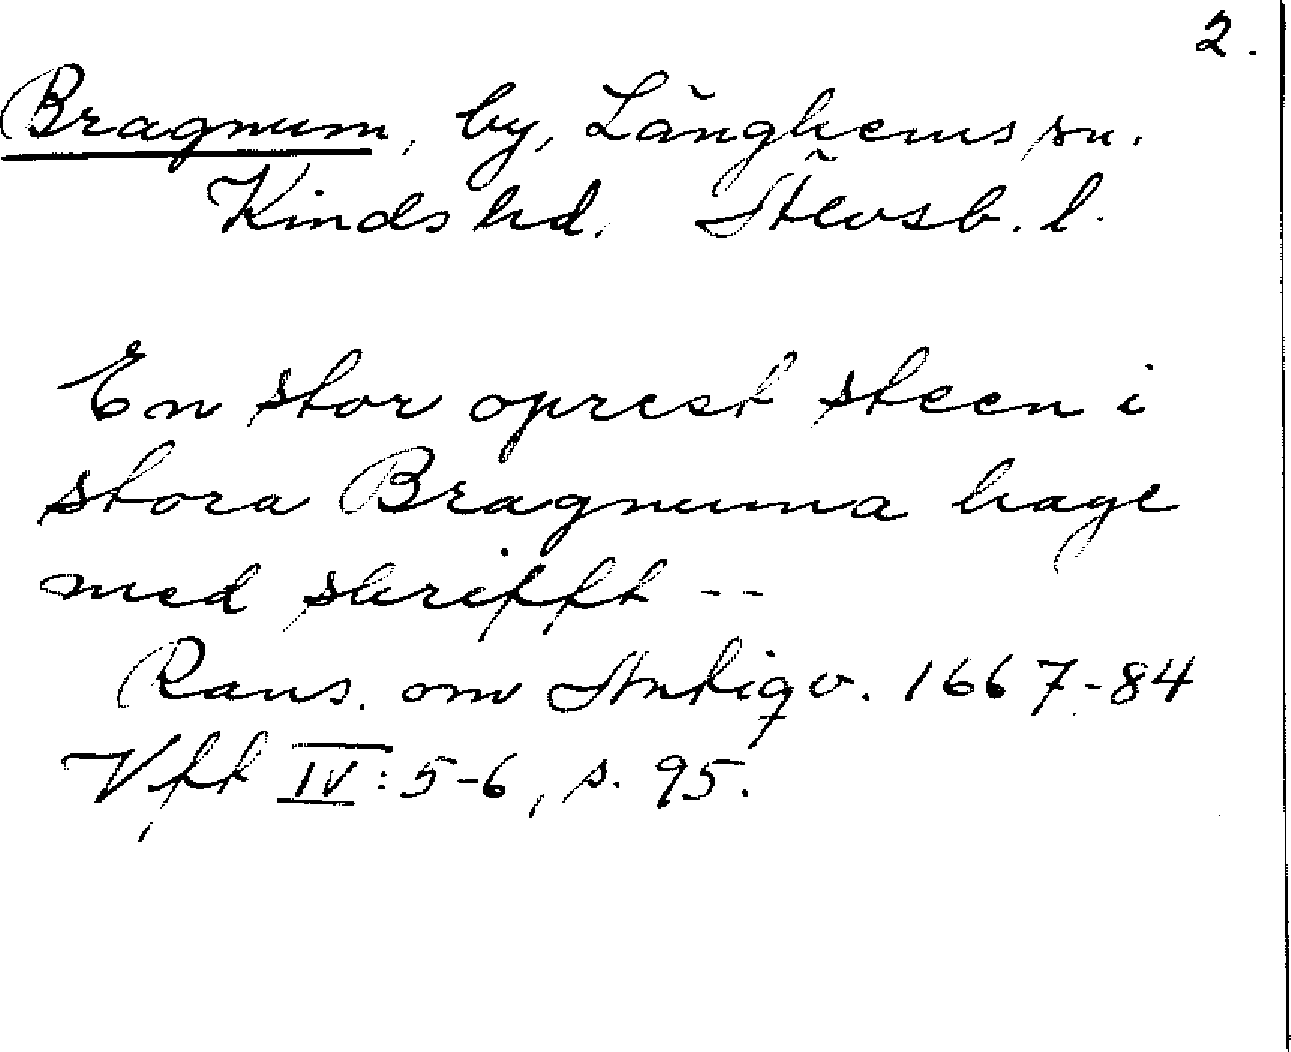 2.
Bragnum, by, Långhems sn.
Kinds hd. Älvsb. l.
En stor oprest steen i
stora Bragnuma hage
med skrifft --
Rans. om Antiqv. 1667-84
Vfft IV: 5-6, s. 95.